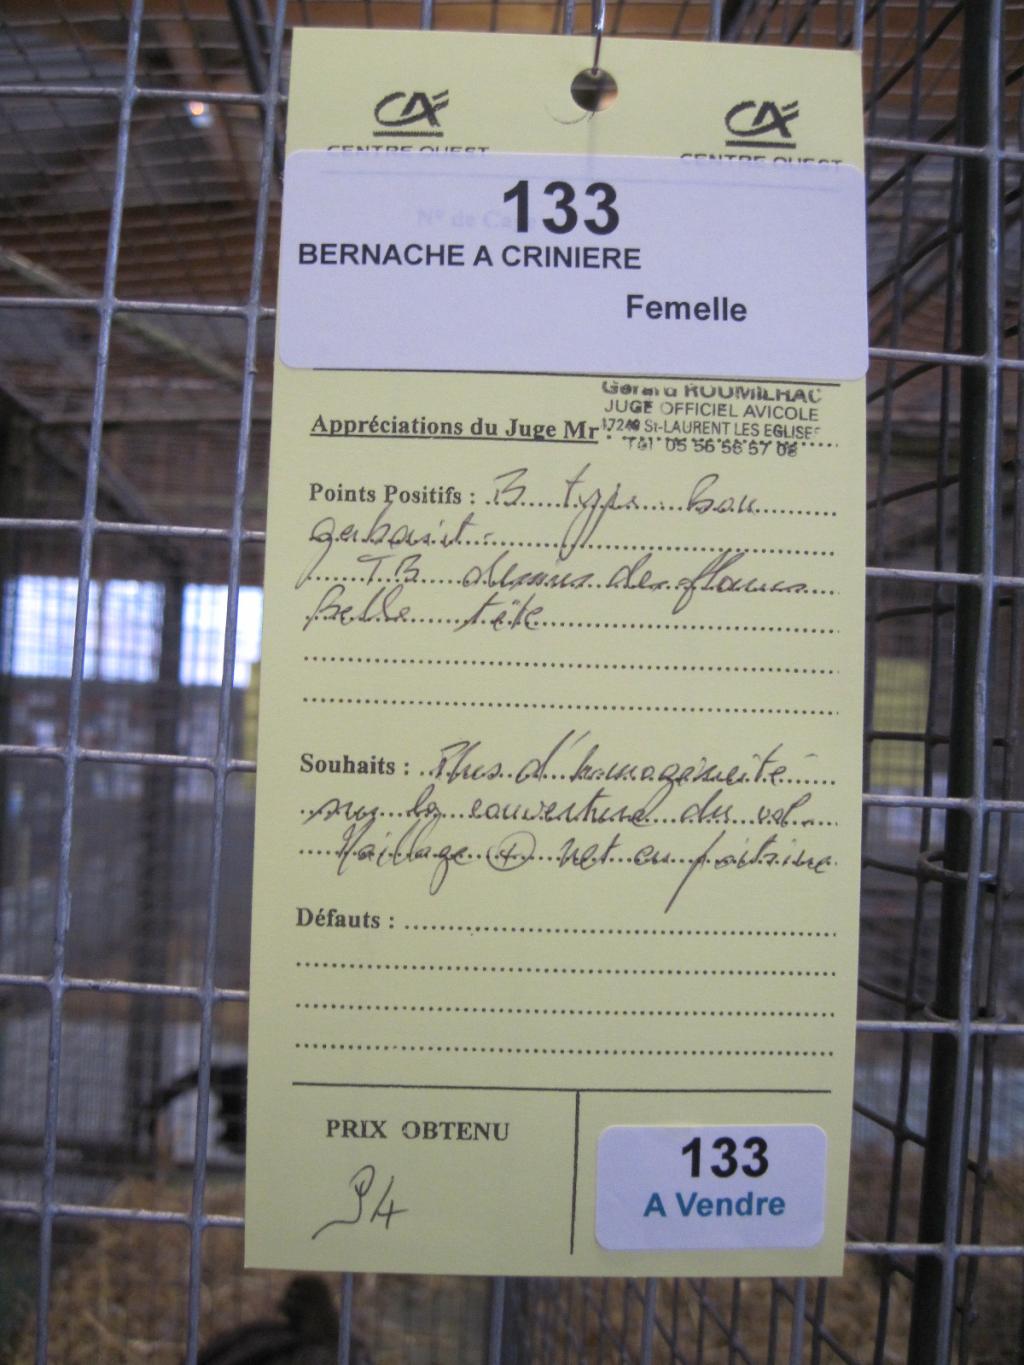 CA CA
CENTRE OUEST CENTRE OUEST
N° de Cage
133
BERNACHE A CRINIERE
Femelle
Gérard ROUMILHAC
JUGE OFFICIEL AVICOLE
Appréciations du Juge Mr :
17240 St-LAURENT LES EGLISES
Tél 05 56 56 57 08
Points Positifs : B type bon
gabarit
TB dessin des flancs
Belle tête
Souhaits : Plus d'homogénéité
sur la couverture du vol
Maillage + net en poitrine
Défauts :
PRIX OBTENU
94
133
A Vendre